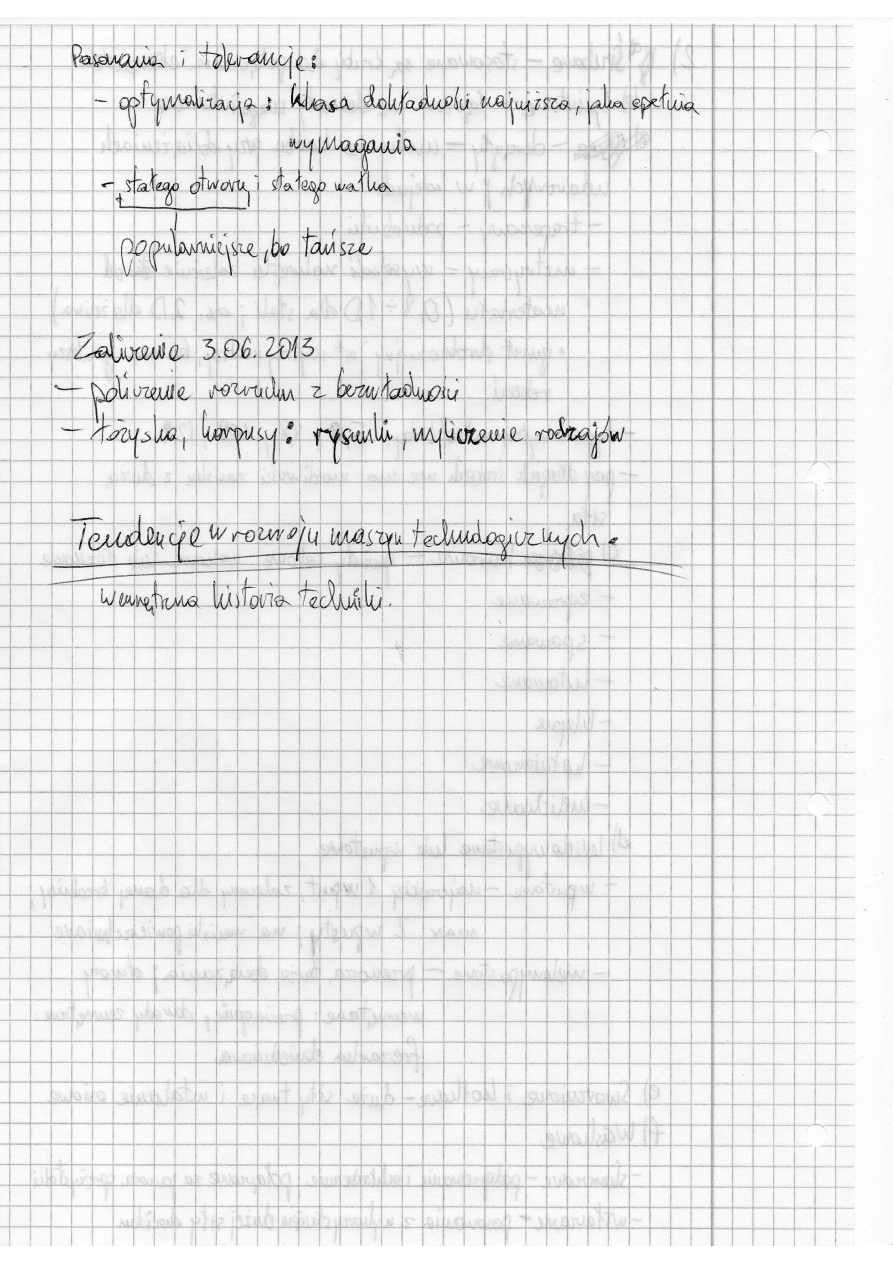 Pasowania i tolerancje:
- optymalizacja: klasa dokładności najniższa, jaka spełnia
wymagania
- stałego otworu i stałego wałka
popularniejsze, bo tańsze
Zaliczenie 3.06.2013
- policzenie rozruchu z bezwładności
- łożyska, korpusy: rysunki, wyliczenie rodzajów
Tendencje w rozwoju maszyn technologicznych.
wewnętrzna historia techniki.